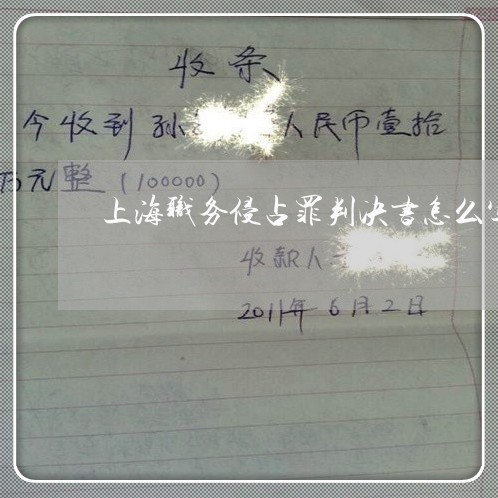 收条
今收到孙 人民币壹拾
万元整（100000）
上海职务侵占罪判决书怎么
收款人
2011年6月2日